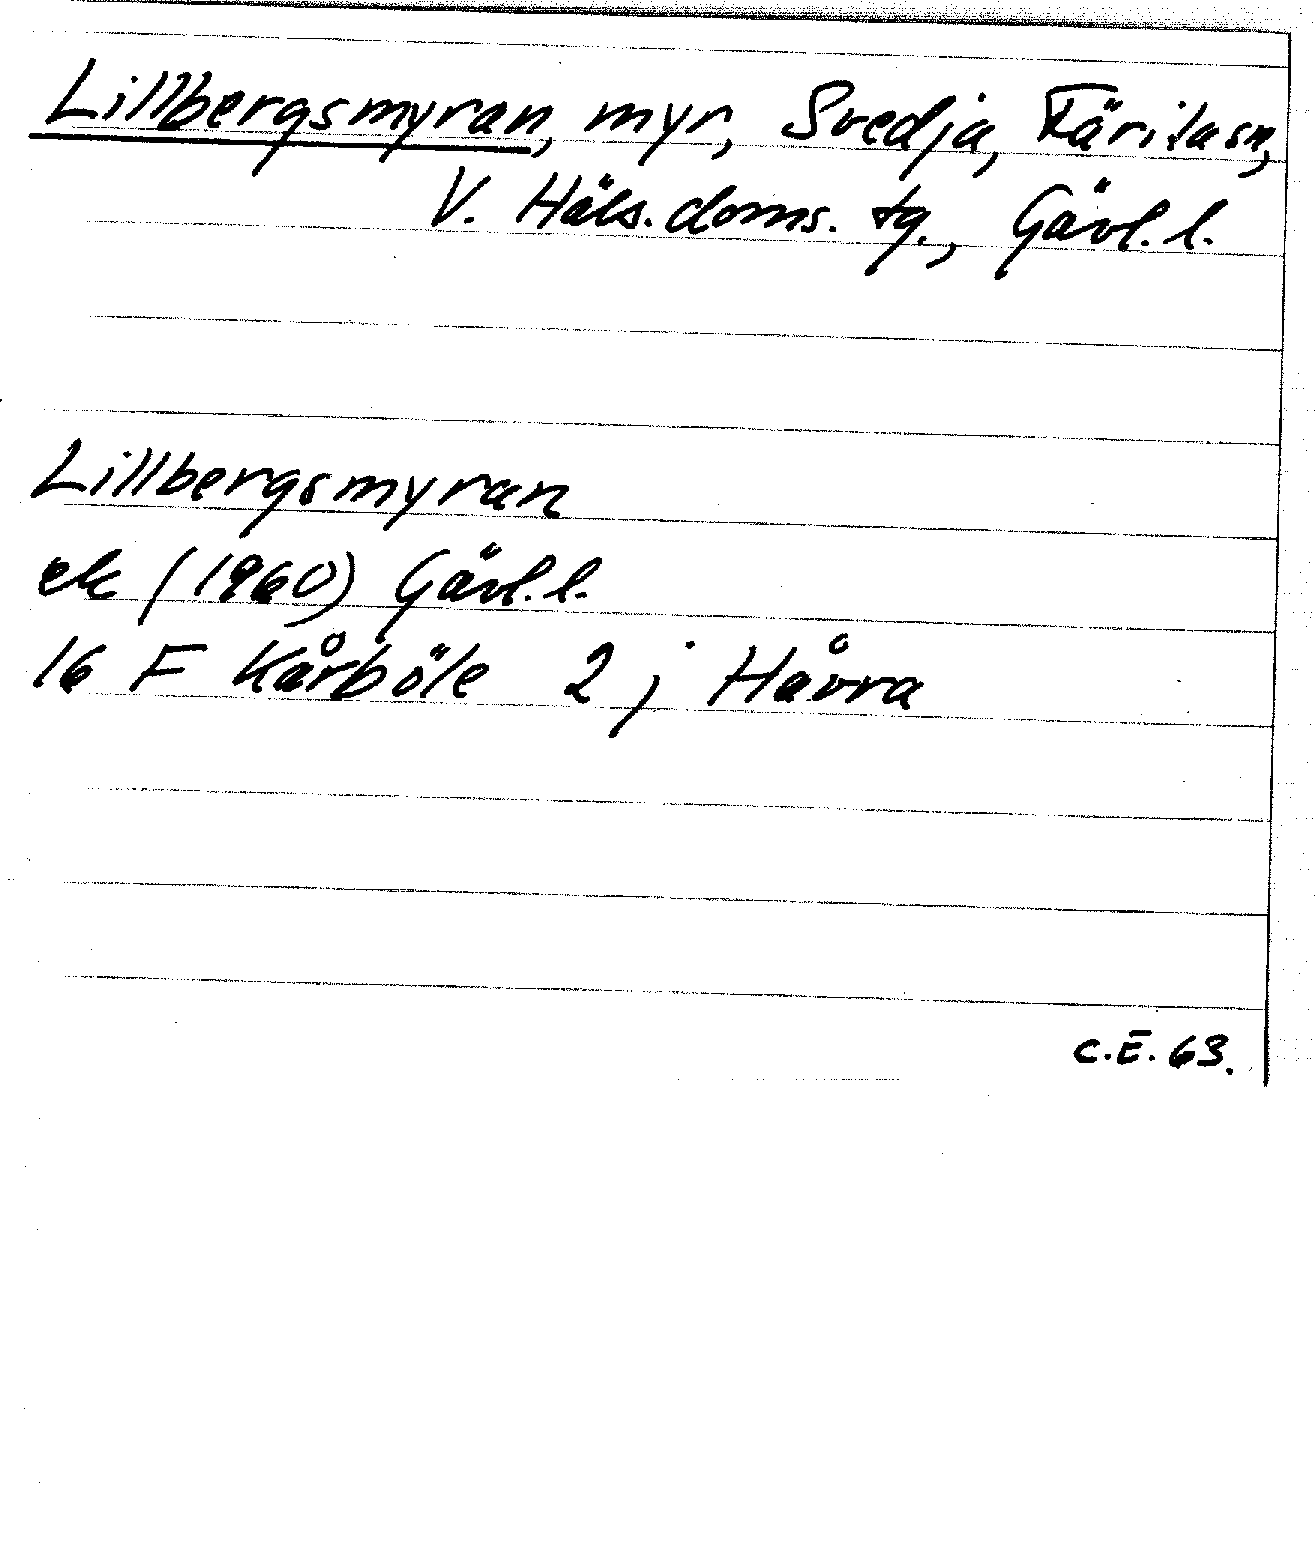 Lillbergsmyran, myr, Svedja, Färila sn,
V. Häls. doms. tg., Gävl. l.
Lillbergsmyran
ek (1960) Gävl. l.
16 F Kårböle 2 j Håvra
C.E. 63.